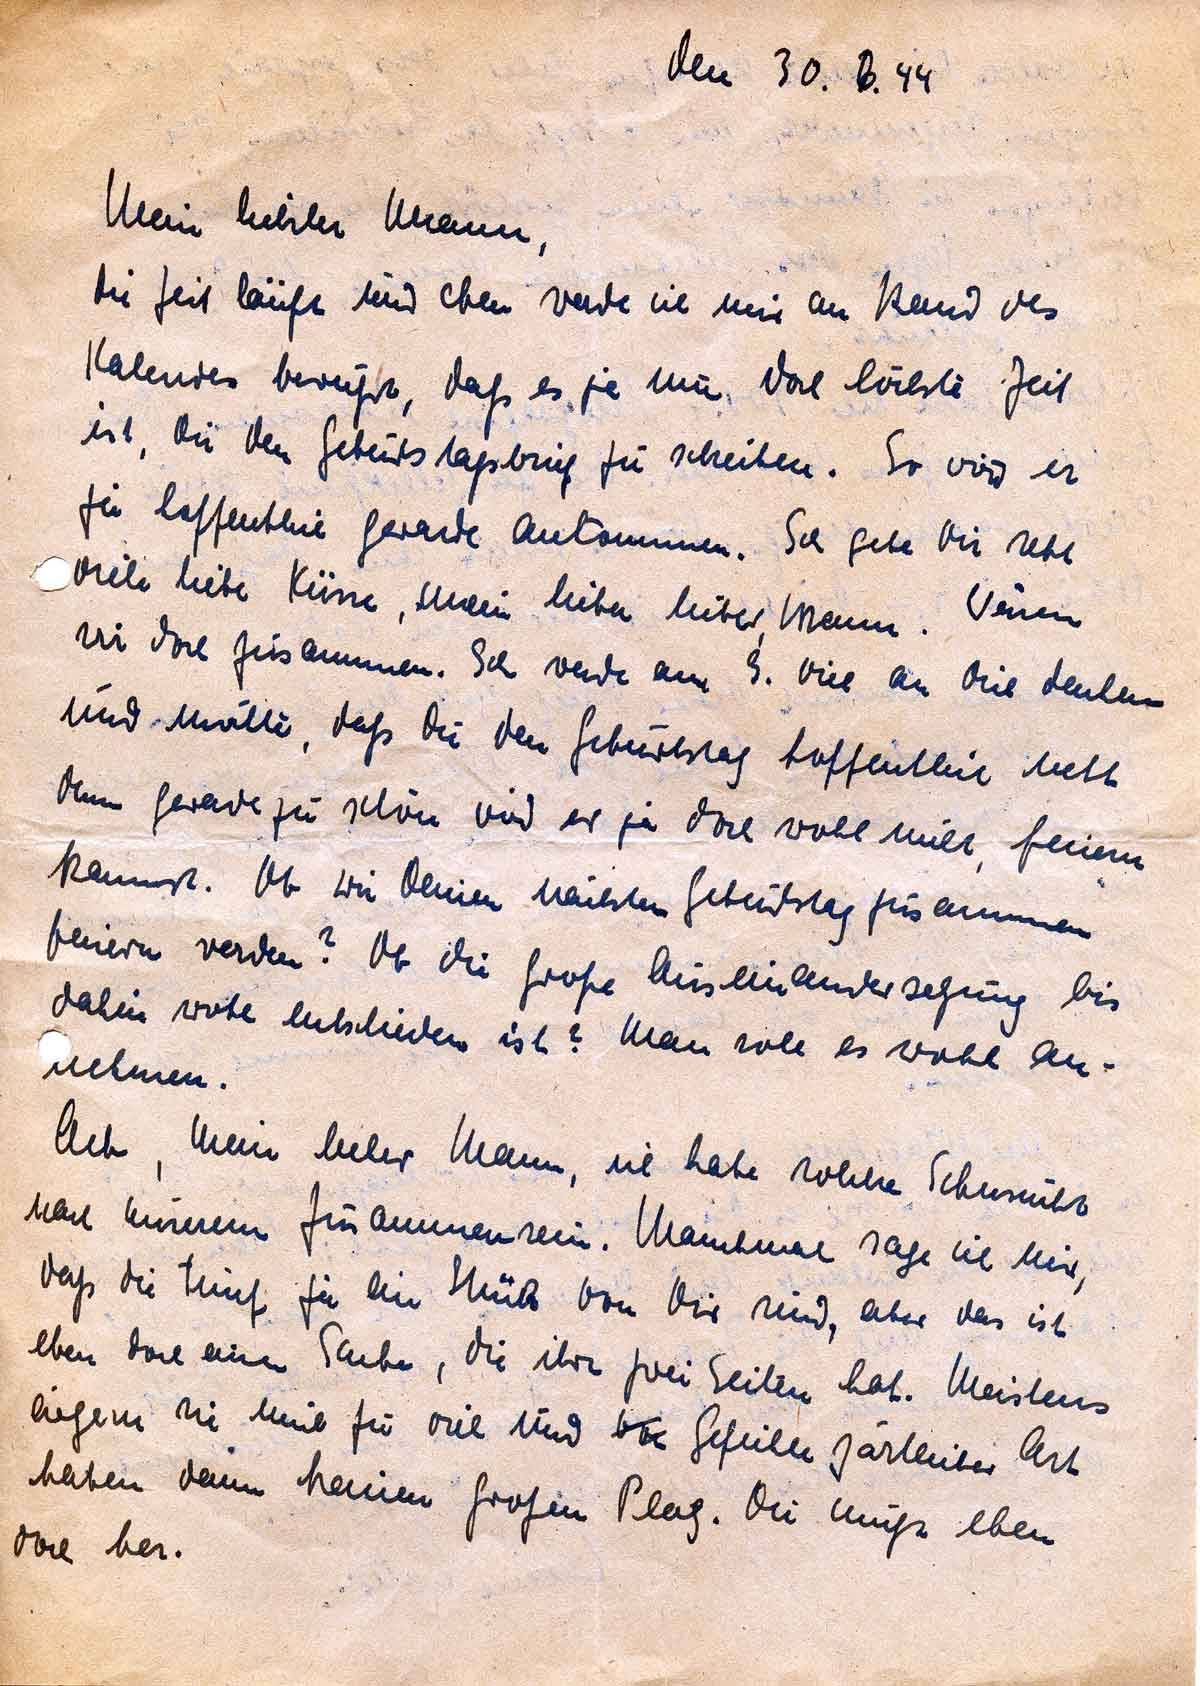 den 30. 8. 44
Mein liebster Mann,
die Zeit läuft und eben werde ich mir an Hand des
Kalenders bewußt, daß es ja nun doch höchste Zeit
ist, Dir den Geburtstagsbrief zu schreiben. So wird er
ja hoffentlich gerade ankommen. Ich gebe Dir recht
viele liebe Küsse, mein lieber lieber Mann. Wären
wir doch zusammen. Ich werde am 9. viel an Dich denken
und möchte, daß Du den Geburtstag hoffentlich nett
denn geradezu schön wird er ja doch wohl nicht, feiern
kannst. Ob wir Deinen nächsten Geburtstag zusammen
feiern werden? Ob die große Auseinandersetzung bis
dahin wohl entschieden ist? Man soll es wohl an-
nehmen.
Ach, mein lieber Mann, ich habe solche Sehnsucht
nach unserem Zusammensein. Manchmal sage ich mir,
daß die fünf ja ein Stück von Dir sind, aber das ist
eben doch eine Sache, die ihre zwei Seiten hat. Meistens
ärgern sie mich zu viel und Gefühle zärtlicher Art
haben dann keinen großen Platz. Du mußt eben
doch her.